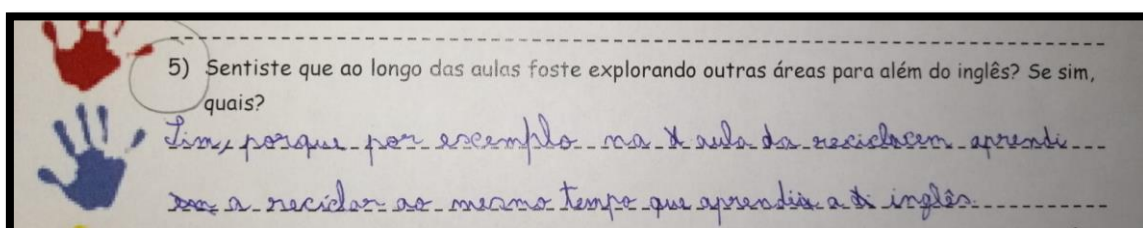 5) Sentiste que ao longo das aulas foste explorando outras áreas para além do inglês? Se sim,
quais?
Sim, porque por escemplo na aula da reciclacem aprendi
a reciclar ao mesmo tempo que aprendia inglês.